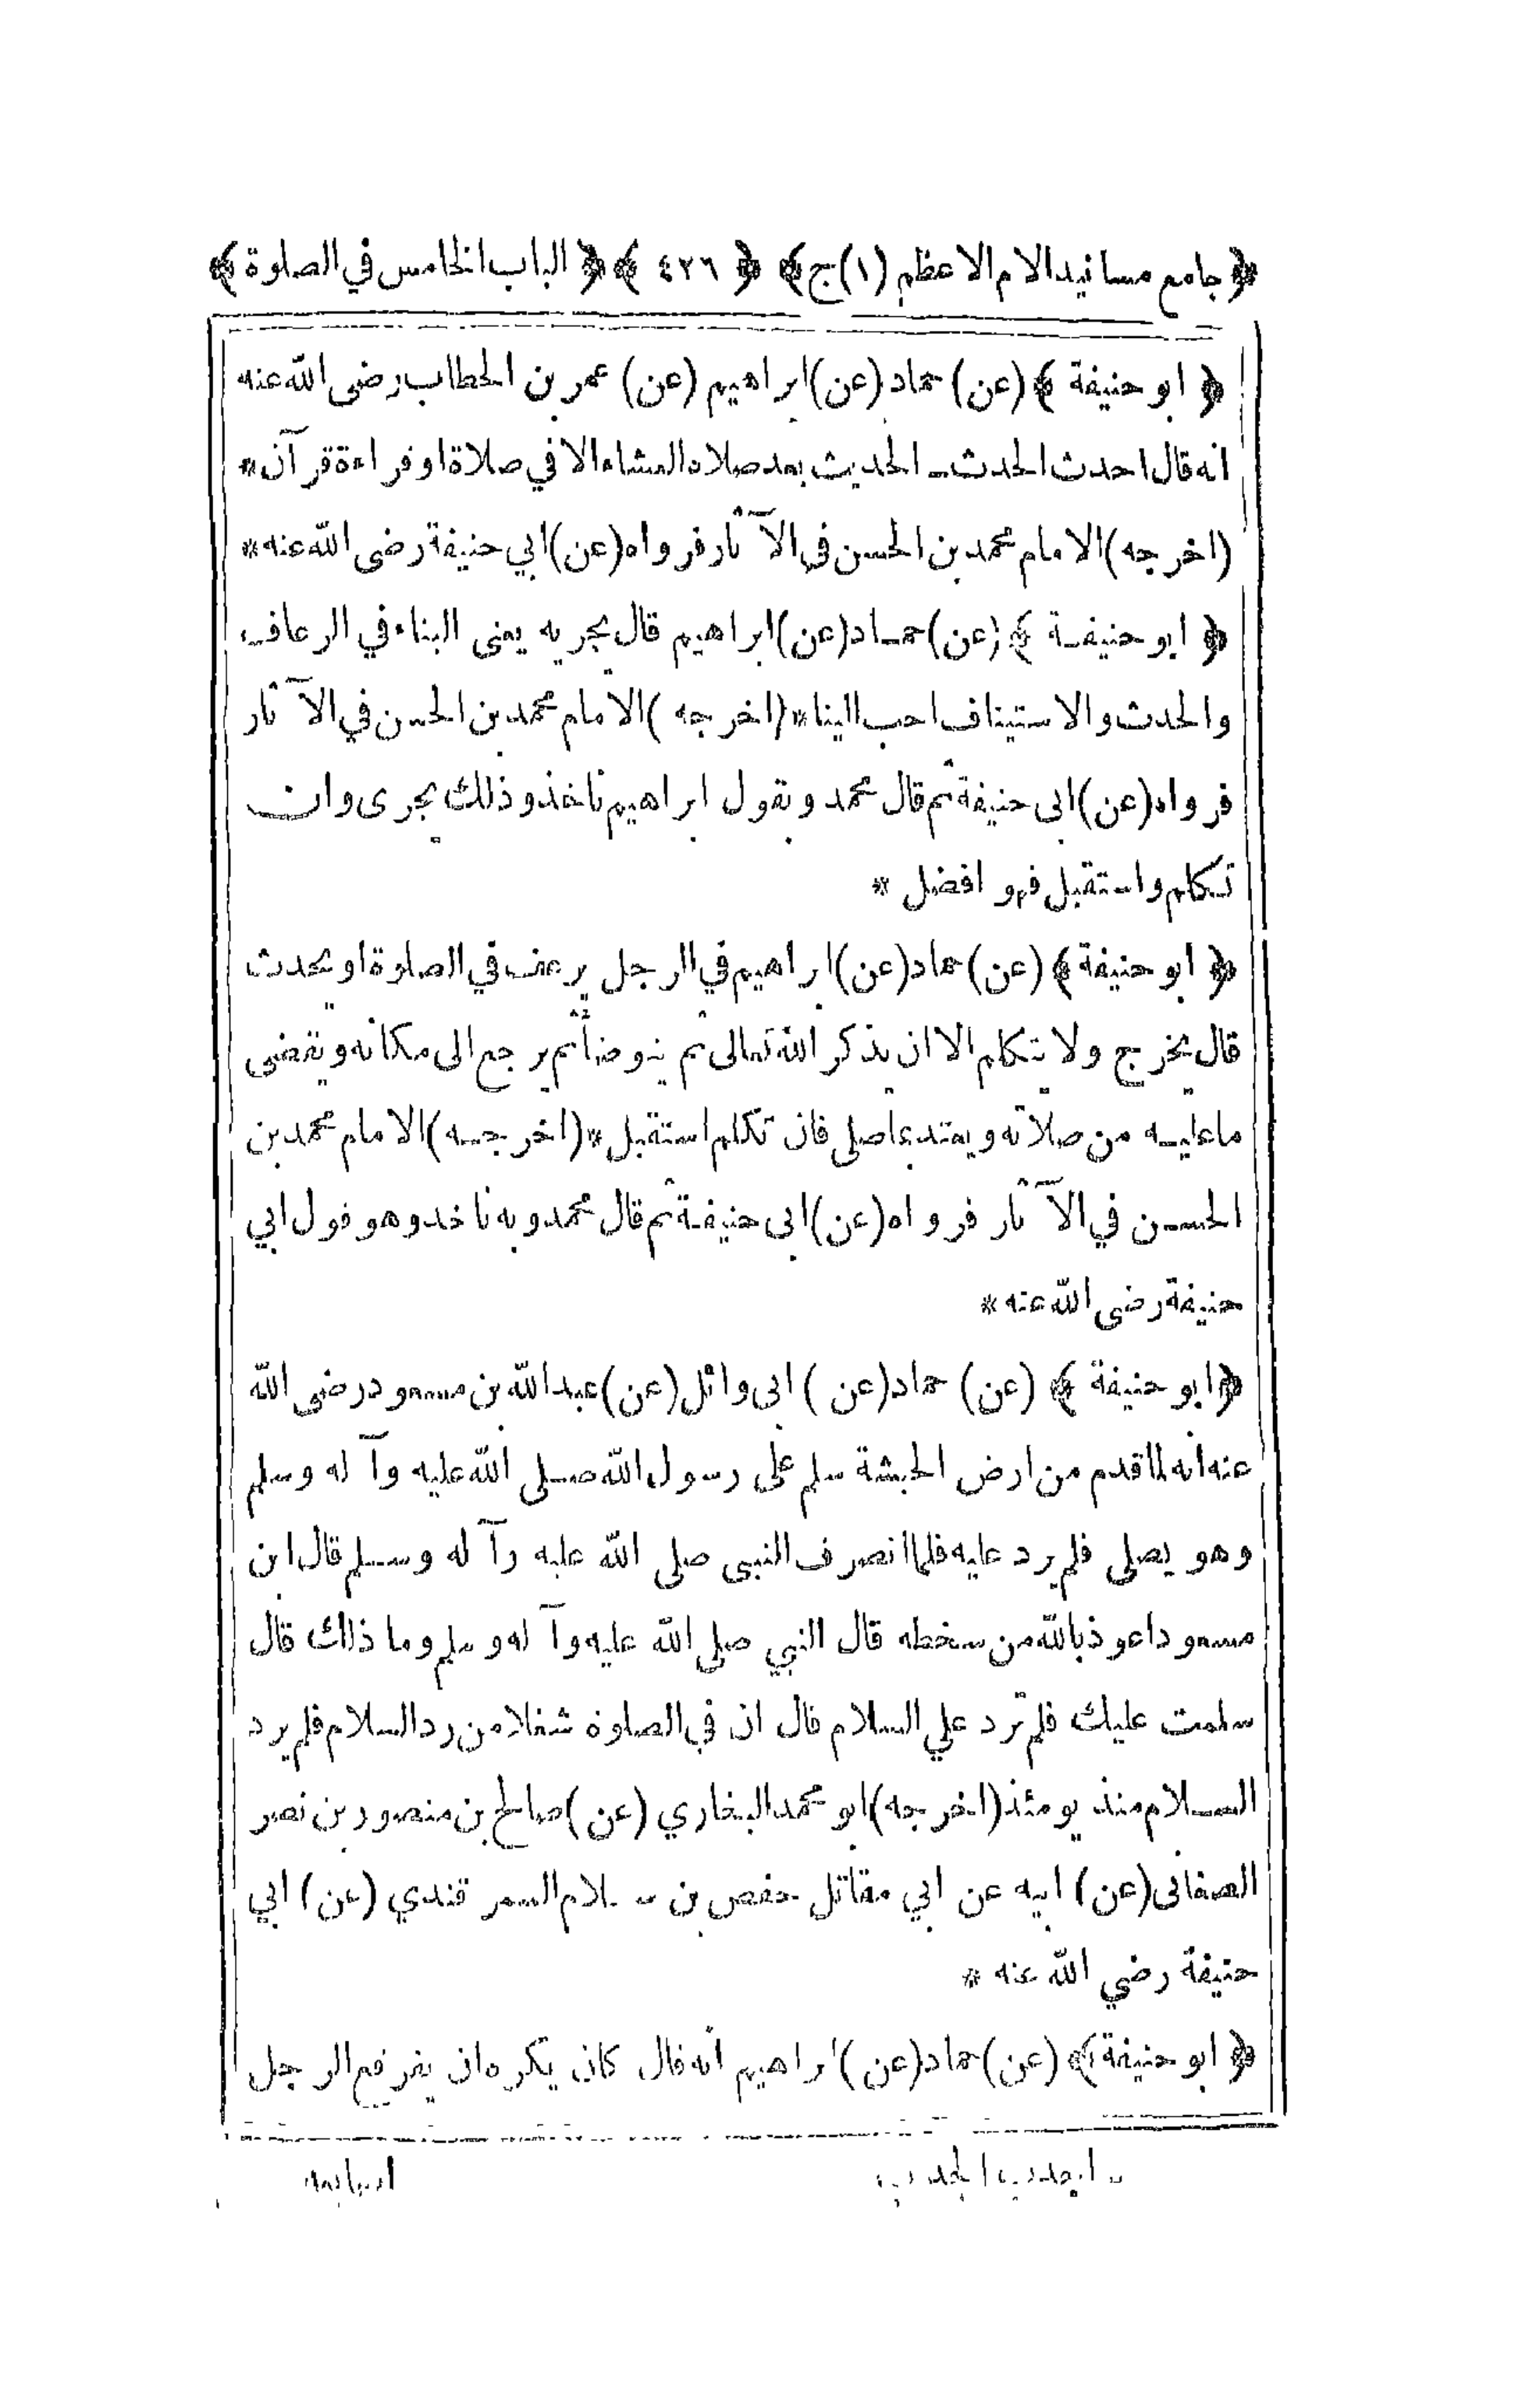 ﴿جامع مسانيد الامام الاعظم (١) ج﴾ ﴿ ٤٢٦ ﴾ ﴿ الباب الخامس في الصلوة ﴾
﴿ ابو حنيفة ﴾ (عن) حماد (عن) ابراهيم (عن) عمر بن الخطاب رضى الله عنه
انه قال احدث الحدث ـ الحديث بعد صلاة العشاء الا في صلاة او قراءة قرآن *
(اخرجه) الامام محمد بن الحسن فى الآثار فرواه (عن) ابي حنيفة رضى الله عنه *
﴿ ابو حنيفة ﴾ (عن) حماد (عن) ابراهيم قال يجزيه يعنى البناء في الرعاف
والحدث والاستيناف احب الينا * (اخرجه) الامام محمد بن الحسن في الآثار
فرواه (عن) ابى حنيفة ثم قال محمد وبقول ابراهيم ناخذ وذلك يجزى وان
تكلم واستقبل فهو افضل *
﴿ ابو حنيفة ﴾ (عن) حماد (عن) ابراهيم في الرجل يرعف في الصلوة او يحدث
قال يخرج ولا يتكلم الا ان يذكر الله تعالى ثم يتوضأ ثم يرجع الى مكانه ويقضى
ما عليه من صلاته ويعتد بما صلى فان تكلم استقبل * (اخرجه) الامام محمد بن
الحسن في الآثار فرواه (عن) ابى حنيفة ثم قال محمد وبه ناخذ وهو قول ابي
حنيفة رضى الله عنه *
﴿ ابو حنيفة ﴾ (عن) حماد (عن) ابى وائل (عن) عبد الله بن مسعود رضى الله
عنه انه لما قدم من ارض الحبشة سلم على رسول الله صلى الله عليه وآله وسلم
وهو يصلى فلم يرد عليه فلما انصرف النبى صلى الله عليه وآله وسلم قال ابن
مسعود اعوذ بالله من سخطه قال النبي صلى الله عليه وآله وسلم وما ذلك قال
سلمت عليك فلم ترد علي السلام قال ان فى الصلوة شغلا من رد السلام فلم يرد
السلام منذ يومئذ (اخرجه) ابو محمد البخاري (عن) صالح بن منصور بن نصر
الصغانى (عن) ابيه عن ابي مقاتل حفص بن سلام السمرقندي (عن) ابي
حنيفة رضي الله عنه *
﴿ ابو حنيفة ﴾ (عن) حماد (عن) ابراهيم انه قال كان يكره ان يفرقع الرجل